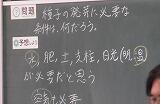 ⑦問題
種子の発芽に必要な
条件は、何だろう。
予想
水、肥、土、支柱、日光(明、温)
が必要だと思う
空気は必要